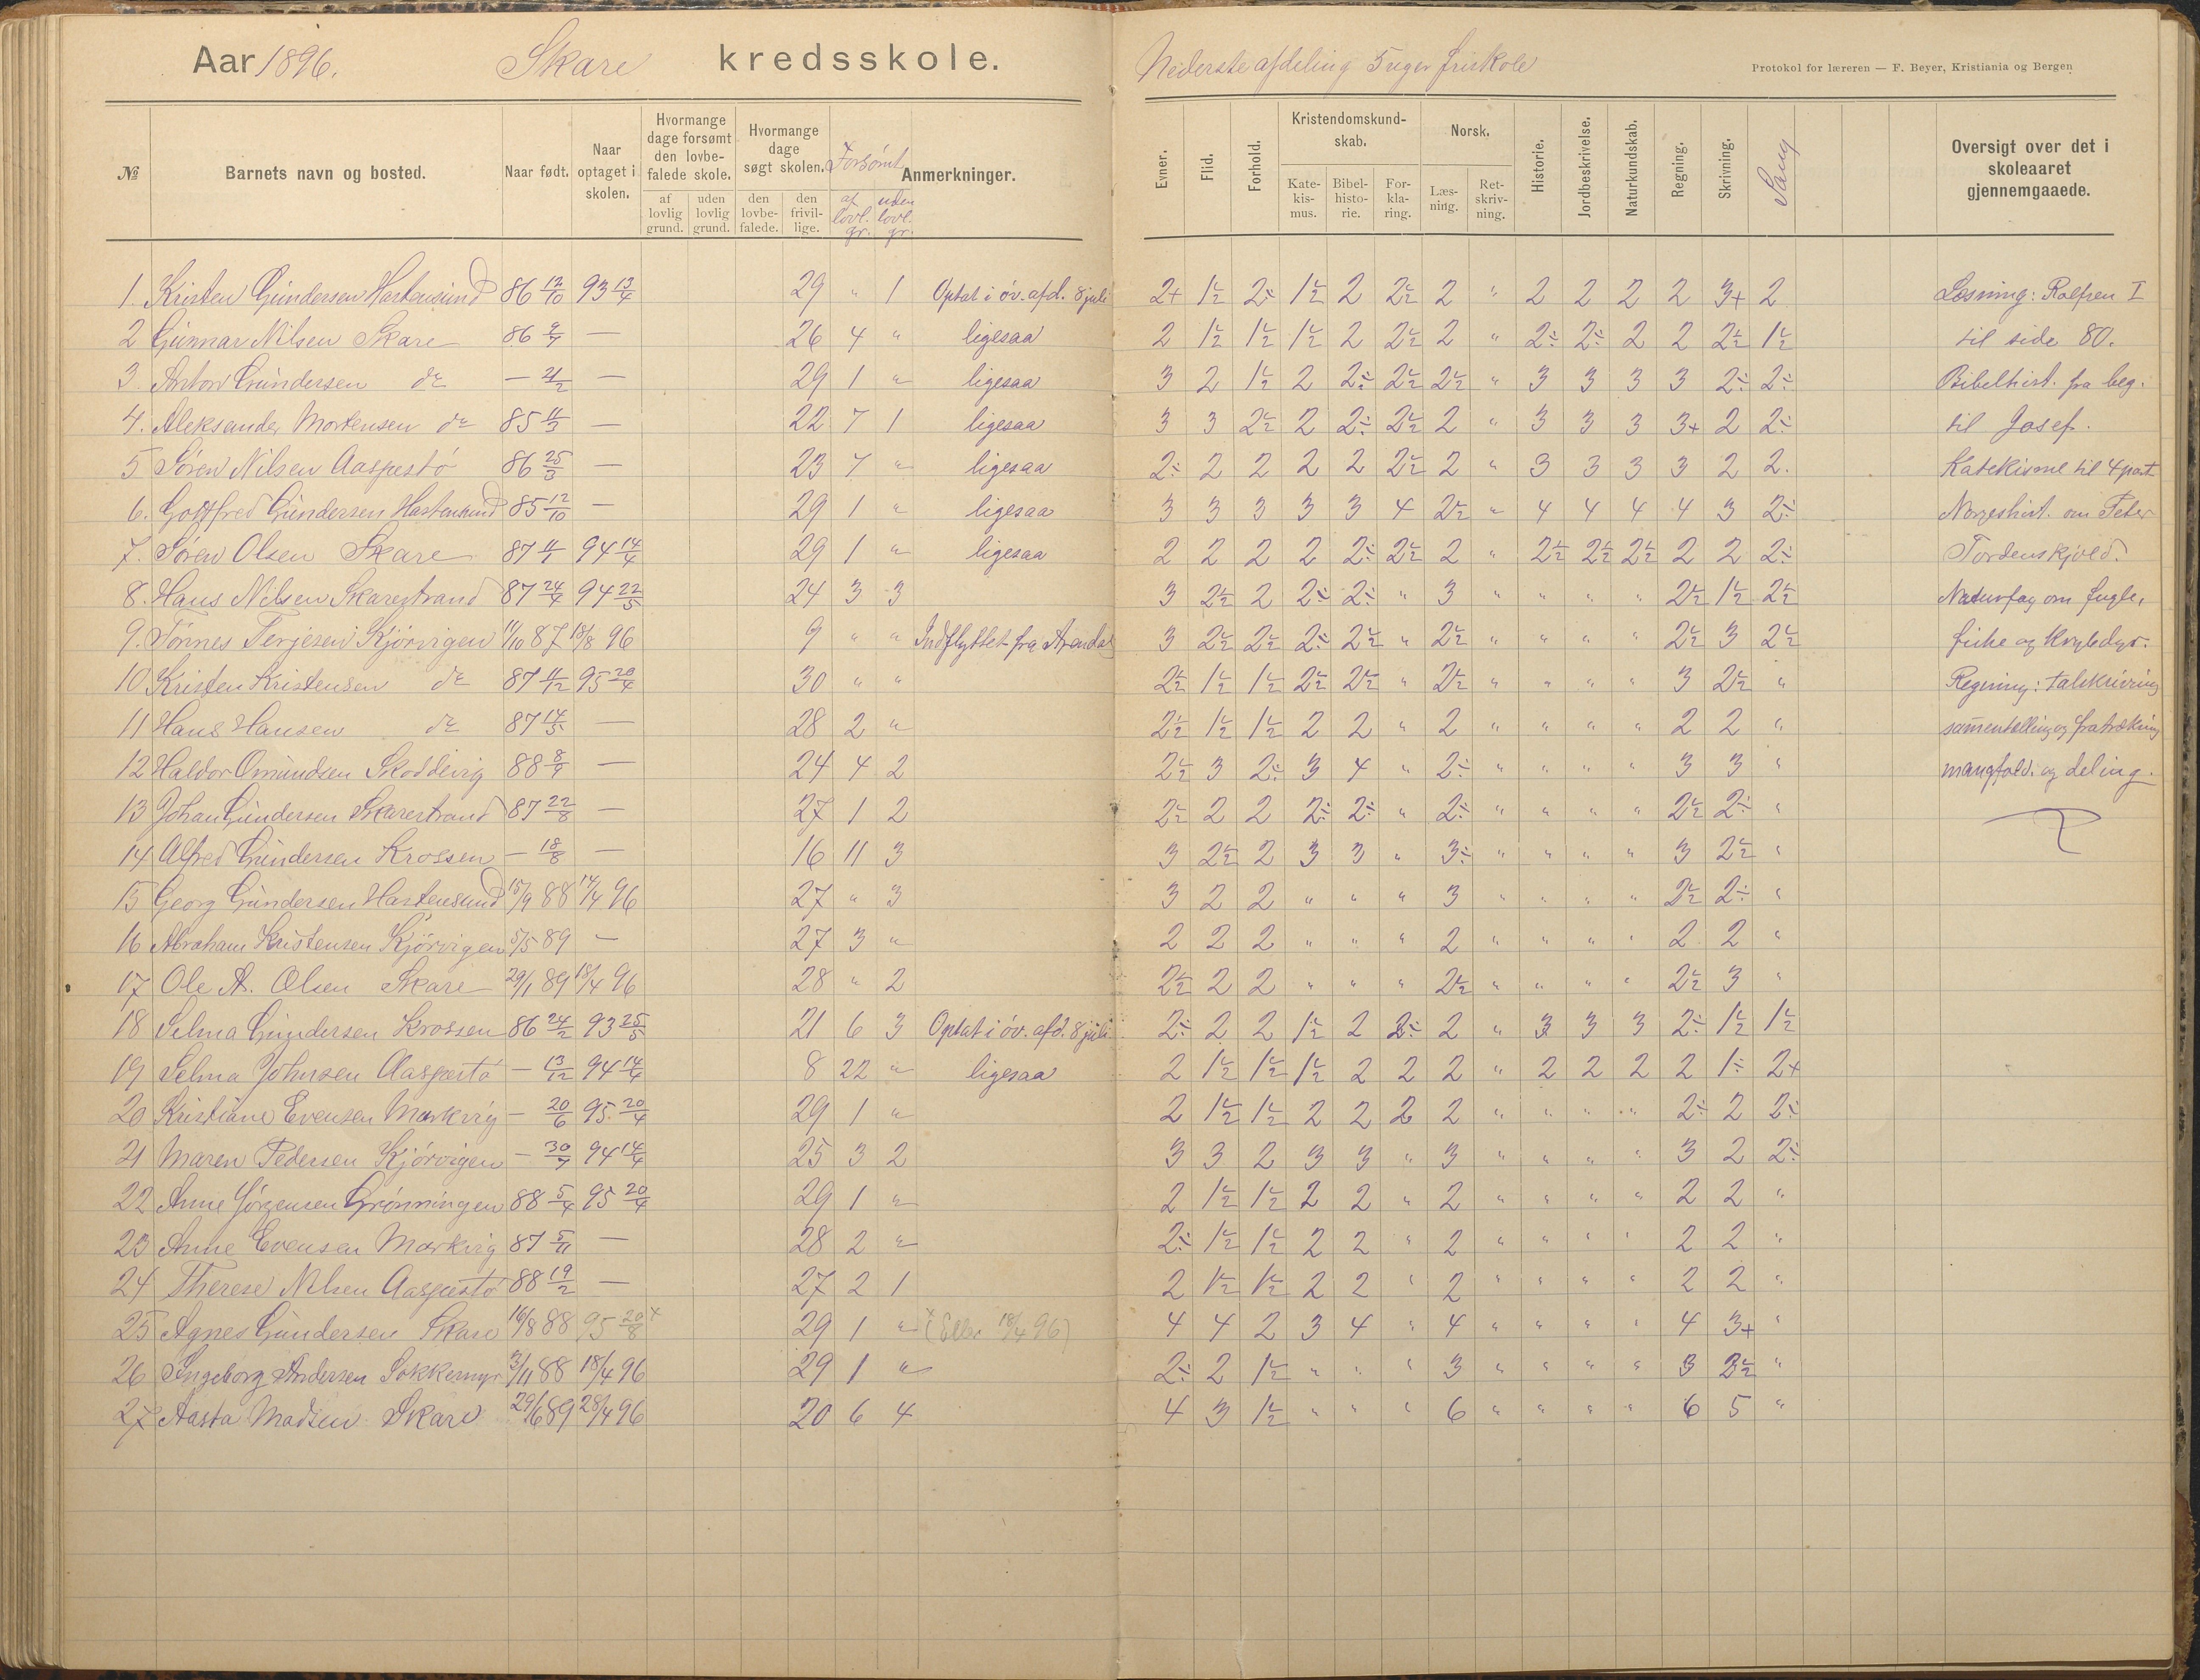 Aar 1896. Skare kredsskole. Nederste afdeling 5 uger friskole
Protokol for læreren — F. Beyer, Kristiania og Bergen
№ Barnets navn og bosted. Naar født. Naar optaget i skolen. Hvormange dage forsømt den lovbefalede skole. Hvormange dage søgt skolen. Forsømt Anmerkninger.
af lovlig grund. uden lovlig grund. den lovbefalede. den frivillige. af lovl. gr. uden lovl. gr.
Evner. Flid. Forhold. Kristendomskundskab. Norsk. Historie. Jordbeskrivelse. Naturkundskab. Regning. Skrivning. Sang Oversigt over det i skoleaaret gjennemgaaede.
Katekismus. Bibelhistorie. Forklaring. Læsning. Retskrivning.
1. Kristen Gundersen Hastensund 86 12/10 93 13/4 29 " 1 Optat i öv. afd. 8 juli 2+ 1½ 2÷ 1½ 2 2½ 2 " 2 2 2 2 3+ 2 Læsning: Rolfsen I
2 Gunnar Nilsen Skare 86 — 26 4 " ligesaa 2 1½ 1½ 1½ 2 2½ 2 " 2÷ 2÷ 2 2 2½ 1½ til side 80.
3. Anton Gundersen do — — 29 1 " ligesaa 3 2 1½ 2 2÷ 2½ 2½ " 3 3 3 3 2÷ 2÷ Bibelhist. fra beg.
4. Aleksander Mortensen do 85 — 22 7 1 ligesaa 3 3 2½ 2 2÷ 2½ 2 " 3 3 3 3+ 2 2÷ til Josef.
5 Sören Nilsen Aaspestö 86 25/3 — 23 7 " ligesaa 2÷ 2 2 2 2 2½ 2 " 3 3 3 3 2 2. Katekisme til 4 part
6. Gottfred Gundersen Hastensund 85 12/10 — 29 1 " ligesaa 3 3 3 3 3 4 2½ " 4 4 4 4 3 2÷ Norgeshist. om Peter
7. Sören Olsen Skare 87 94 14/4 29 1 " ligesaa 2 2 2 2 2÷ 2½ 2 " 2½ 2½ 2½ 2 2 2÷ Tordenskjold.
8. Hans Nilsen Skarestrand 87 24/4 94 22/5 24 3 3 3 2½ 2 2÷ 2÷ " 3 " " " " 2½ 1½ 2½ Naturfag om fugle,
9. Tönnes Terjesen Kjörvigen 11/10 87 18/8 96 9 " " Indflyttet fra Arendal 3 2½ 2½ 2÷ 2½ " 2½ " " " " 2½ 3 2½ fiske og krybdyr.
10 Kristen Kristensen do 87 11/12 95 20/4 30 " " 2½ 1½ 1½ 2½ 2½ " 2½ " " " " 3 2½ " Regning: talskrivning
11 Hans Hansen do 87 14/5 — 28 2 " 2½ 1½ 1½ 2 2 " 2 " " " " 2 2 " sammentælling og fratrækning
12 Haldor Omundsen Skoddevig 88 — 24 4 2 2½ 3 2÷ 3 4 " 2÷ " " " " 3 3 " mangfold. og deling.
13 Johan Gundersen Skarestrand 87 22/8 — 27 1 2 2½ 2 2 2÷ 2÷ " 2÷ " " " " 2½ 2÷ "
14 Alfred Gundersen Krossen — 18/8 — 16 11 3 3 2½ 2 3 3 " 3÷ " " " " 3 2½ "
15 Georg Gundersen Hastensund 15/9 88 14/4 96 27 " 3 3 2 2 " " " 3 " " " " 2½ 2÷ "
16 Abraham Kristensen Kjörvigen 5/5 89 — 27 3 " 2 2 2 " " " 2 " " " " 2 2 "
17 Ole A. Olsen Skare 29/1 89 18/4 96 28 " 2 2½ 2 2 " " " 2½ " " " " 2½ 3 "
18 Selma Gundersen Krossen 86 24/2 93 25/5 21 6 3 Optat i öv. afd. 8 juli 2÷ 2 2 1½ 2 2÷ 2 " 3 3 3 2÷ 1½ 1½
19 Selma Johnsen Aaspestö — 13/12 94 14/4 8 22 " ligesaa 2 1½ 1½ 1½ 2 2 2 " 2 2 2 2 1÷ 2+
20 Kristiane Evensen Markvig — 20/6 95 20/4 29 1 " 2 1½ 1½ 2 2 2 2 " " " " 2÷ 2 2÷
21 Maren Pedersen Kjörvigen — 94 14/4 25 3 2 3 3 2 3 3 " 3 " " " " 3 2 2÷
22 Anne Jörgensen Grönningen 88 5/4 95 20/4 29 1 " 2 1½ 1½ 2 2 " 2 " " " " 2 2 "
23 Anne Evensen Markvig 87 5/11 — 28 2 " 2÷ 1½ 1½ 2 2 " 2 " " " " 2 2 "
24 Therese Nilsen Aaspestö 88 19/2 — 27 2 1 2 1½ 1½ 2 2 " 2 " " " " 2 2 "
25 Agnes Gundersen Skare 16/8 88 95 20/8 x 29 1 " x (Eller 18/4 96) 4 4 2 3 4 " 4 " " " " 4 3+ "
26 Ingeborg Andersen 3/11 88 18/4 96 29 1 " 2÷ 2 1½ " " " 3 " " " " 3 3½ "
27 Aasta Madsen Skare 29/6 89 28/4 96 20 6 4 4 3 1½ " " " 6 " " " " 6 5 "